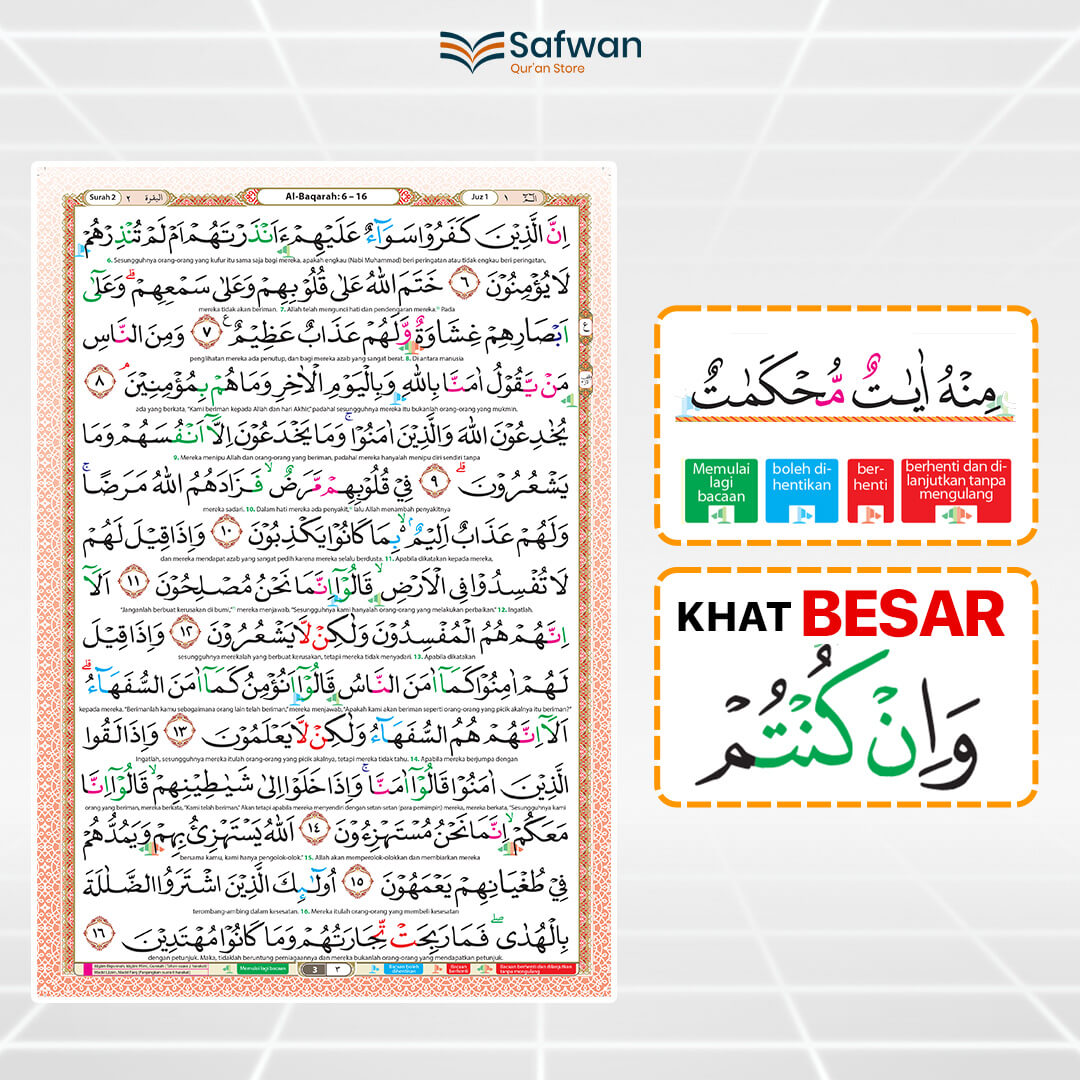 Safwan
Qur'an Store
Surah 2
٢ البقرة
Al-Baqarah: 6 – 16
Juz 1
١
اِنَّ الَّذِيْنَ كَفَرُوْا سَوَاۤءٌ عَلَيْهِمْ ءَاَنْذَرْتَهُمْ اَمْ لَمْ تُنْذِرْهُمْ
6. Sesungguhnya orang-orang yang kufur itu sama saja bagi mereka, apakah engkau (Nabi Muhammad) beri peringatan atau tidak engkau beri peringatan,
لَا يُؤْمِنُوْنَ ٦ خَتَمَ اللّٰهُ عَلٰى قُلُوْبِهِمْ وَعَلٰى سَمْعِهِمْ ۗ وَعَلٰٓى
mereka tidak akan beriman. 7. Allah telah mengunci hati dan pendengaran mereka. Pada
اَبْصَارِهِمْ غِشَاوَةٌ وَّلَهُمْ عَذَابٌ عَظِيْمٌ ٧ وَمِنَ النَّاسِ
penglihatan mereka ada penutup, dan bagi mereka azab yang sangat berat. 8. Di antara manusia
مَنْ يَّقُوْلُ اٰمَنَّا بِاللّٰهِ وَبِالْيَوْمِ الْاٰخِرِ وَمَا هُمْ بِمُؤْمِنِيْنَۘ ٨
ada yang berkata, "Kami beriman kepada Allah dan hari Akhir," padahal sesungguhnya mereka itu bukanlah orang-orang yang mukmin.
يُخٰدِعُوْنَ اللّٰهَ وَالَّذِيْنَ اٰمَنُوْاۚ وَمَا يَخْدَعُوْنَ اِلَّآ اَنْفُسَهُمْ وَمَا
9. Mereka menipu Allah dan orang-orang yang beriman, padahal mereka hanyalah menipu diri sendiri tanpa
يَشْعُرُوْنَۗ ٩ فِيْ قُلُوْبِهِمْ مَّرَضٌۙ فَزَادَهُمُ اللّٰهُ مَرَضًاۚ
mereka sadari. 10. Dalam hati mereka ada penyakit, lalu Allah menambah penyakitnya
وَلَهُمْ عَذَابٌ اَلِيْمٌ ۢ ەۙ بِمَا كَانُوْا يَكْذِبُوْنَ ١٠ وَاِذَا قِيْلَ لَهُمْ
dan mereka mendapat azab yang sangat pedih karena mereka selalu berdusta. 11. Apabila dikatakan kepada mereka,
لَا تُفْسِدُوْا فِى الْاَرْضِۙ قَالُوْٓا اِنَّمَا نَحْنُ مُصْلِحُوْنَ ١١ اَلَآ
"Janganlah berbuat kerusakan di bumi," mereka menjawab, "Sesungguhnya kami hanyalah orang-orang yang melakukan perbaikan." 12. Ingatlah,
اِنَّهُمْ هُمُ الْمُفْسِدُوْنَ وَلٰكِنْ لَّا يَشْعُرُوْنَ ١٢ وَاِذَا قِيْلَ
sesungguhnya merekalah yang berbuat kerusakan, tetapi mereka tidak menyadari. 13. Apabila dikatakan
لَهُمْ اٰمِنُوْا كَمَآ اٰمَنَ النَّاسُ قَالُوْٓا اَنُؤْمِنُ كَمَآ اٰمَنَ السُّفَهَاۤءُۗ
kepada mereka, "Berimanlah kamu sebagaimana orang lain telah beriman," mereka menjawab, "Apakah kami akan beriman seperti orang-orang yang picik akalnya itu beriman?"
اَلَآ اِنَّهُمْ هُمُ السُّفَهَاۤءُ وَلٰكِنْ لَّا يَعْلَمُوْنَ ١٣ وَاِذَا لَقُوا
Ingatlah, sesungguhnya mereka itulah orang-orang yang picik akalnya, tetapi mereka tidak tahu. 14. Apabila mereka berjumpa dengan
الَّذِيْنَ اٰمَنُوْا قَالُوْٓا اٰمَنَّاۚ وَاِذَا خَلَوْا اِلٰى شَيٰطِيْنِهِمْۙ قَالُوْٓا اِنَّا
orang yang beriman, mereka berkata, "Kami telah beriman." Akan tetapi apabila mereka menyendiri dengan setan-setan (para pemimpin) mereka, mereka berkata, "Sesungguhnya kami
مَعَكُمْۙ اِنَّمَا نَحْنُ مُسْتَهْزِءُوْنَ ١٤ اَللّٰهُ يَسْتَهْزِئُ بِهِمْ وَيَمُدُّهُمْ
bersama kamu, kami hanya pengolok-olok." 15. Allah akan memperolok-olokkan dan membiarkan mereka
فِيْ طُغْيَانِهِمْ يَعْمَهُوْنَ ١٥ اُولٰۤىِٕكَ الَّذِيْنَ اشْتَرَوُا الضَّلٰلَةَ
terombang-ambing dalam kesesatan. 16. Mereka itulah orang-orang yang membeli kesesatan
بِالْهُدٰىۖ فَمَا رَبِحَتْ تِّجَارَتُهُمْ وَمَا كَانُوْا مُهْتَدِيْنَ ١٦
dengan petunjuk. Maka, tidaklah beruntung perniagaannya dan mereka bukanlah orang-orang yang mendapatkan petunjuk.
Memulai lagi bacaan
3 ٣
Bacaan boleh dihentikan
Bacaan berhenti
Bacaan berhenti dan dilanjutkan tanpa mengulang
مِنْهُ اٰيٰتٌ مُّحْكَمٰتٌ
Memulai lagi bacaan
boleh di-hentikan
ber-henti
berhenti dan di-lanjutkan tanpa mengulang
KHAT BESAR
وَاِنْ كُنْتُمْ